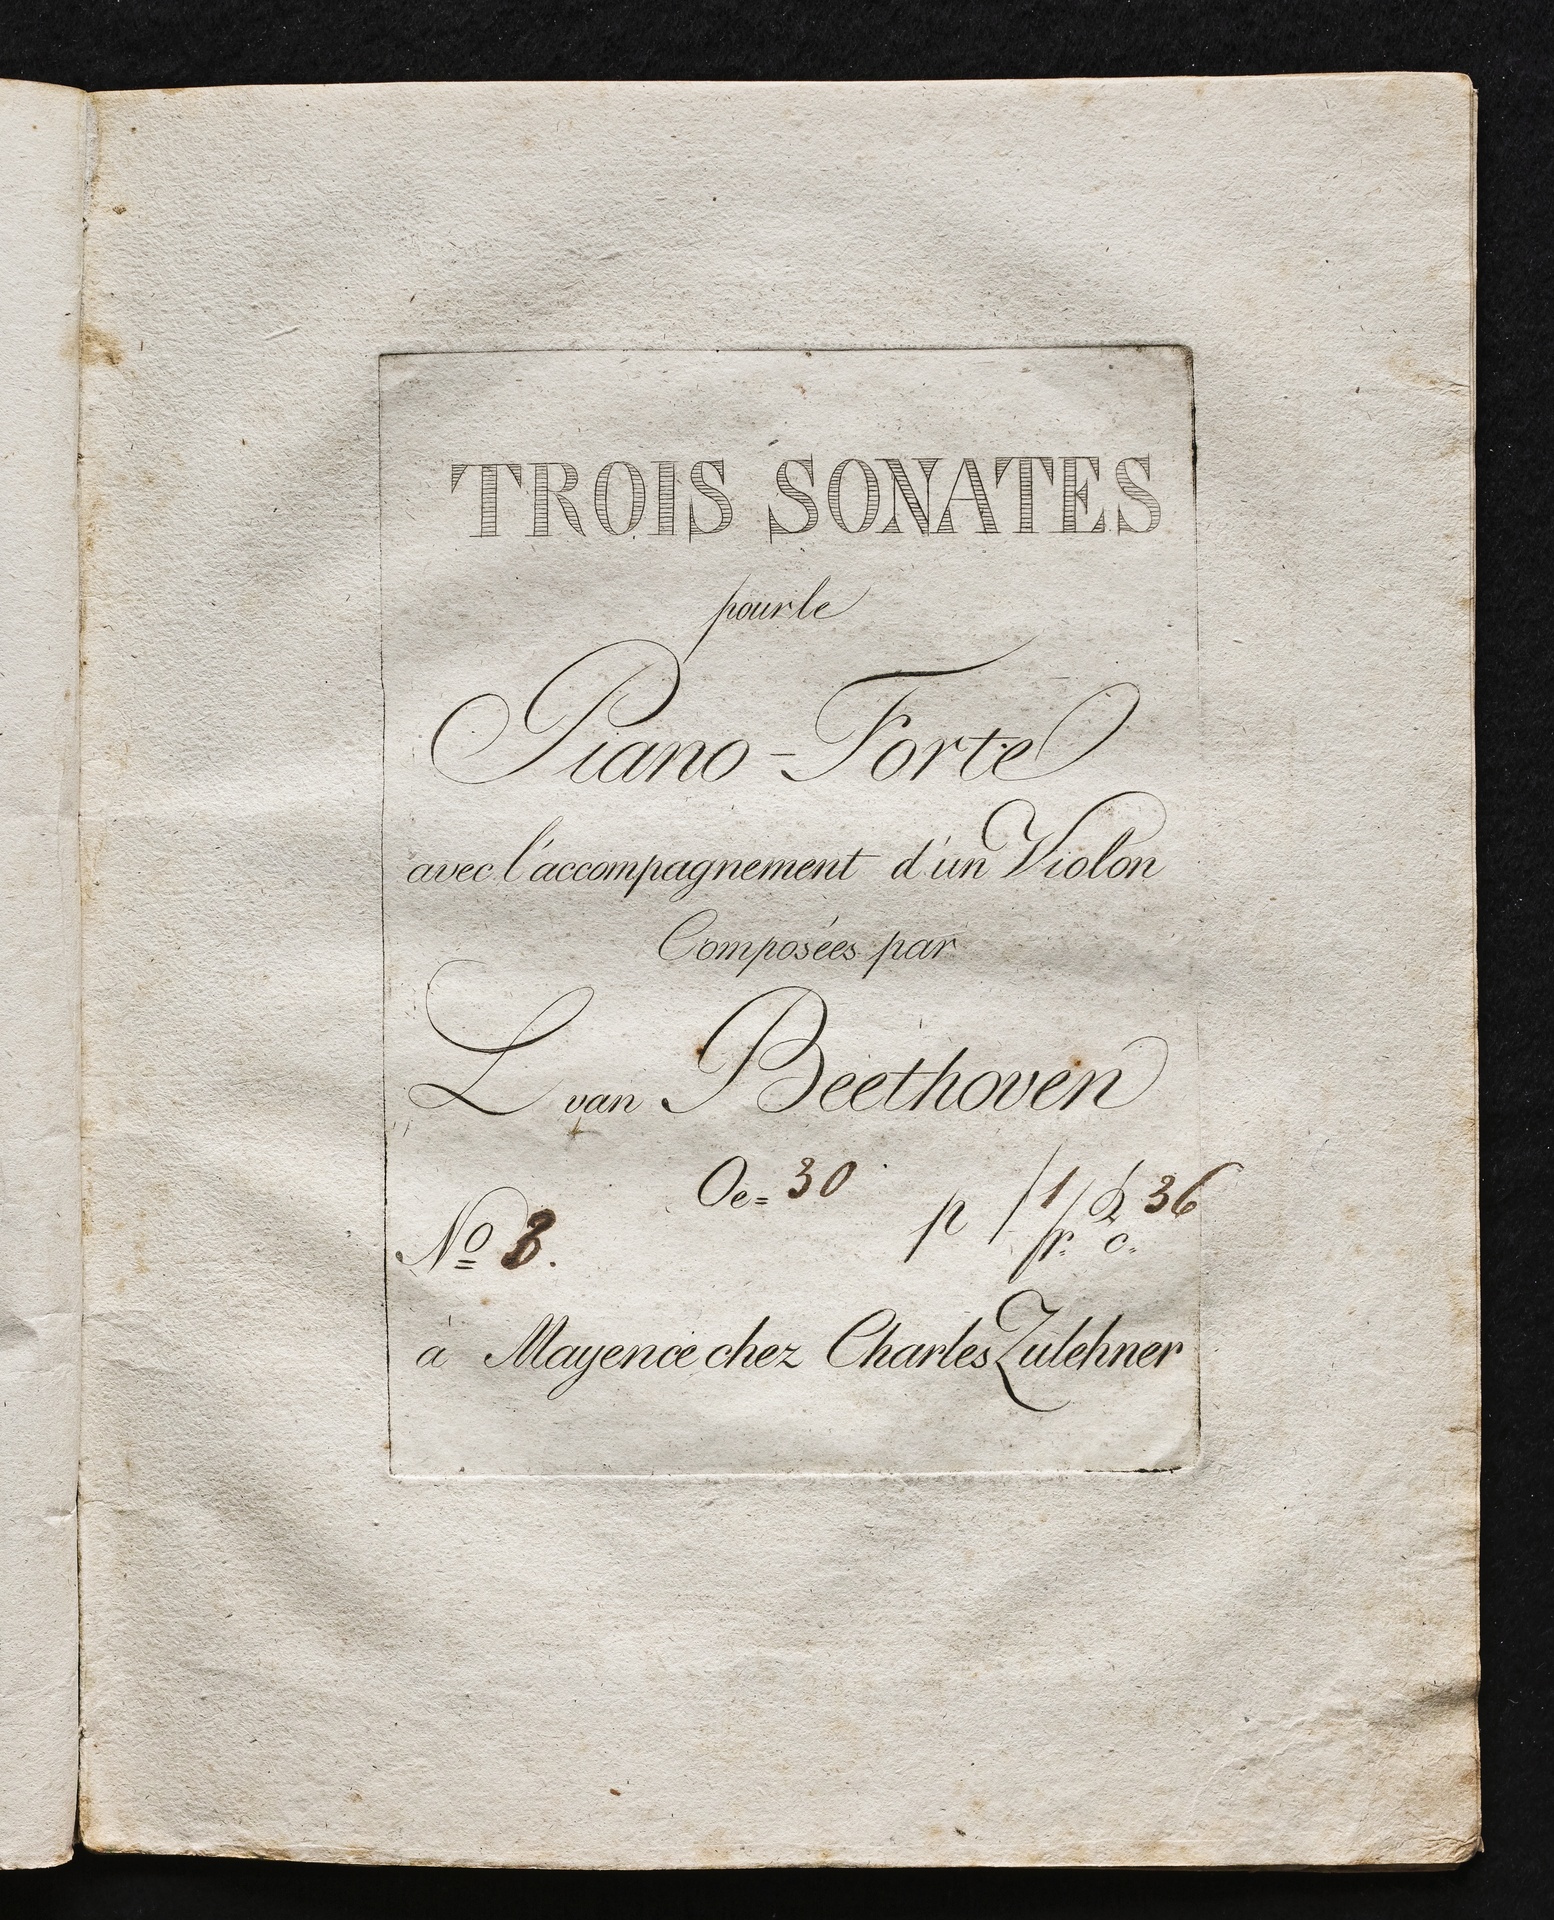 TROIS SONATES
pour le
Piano-Forte
avec l'accompagnement d'un Violon
Composées par
L van Beethoven
Oe= 30
No 3.
p f 1 x 36
fr: c:
à Mayence chez Charles Zulehner